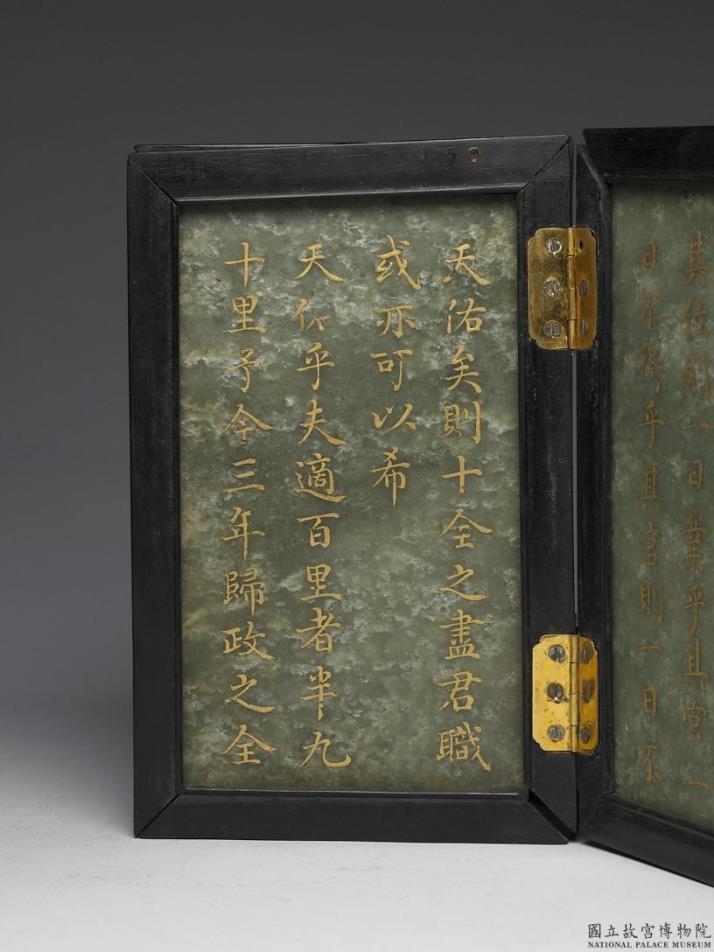 其位則一日業乎其官一
日不得乎其官則一日不
天佑矣則十全之盡君職
或亦可以希
天乎夫適百里者半九
十里予今三年歸政之全
國立故宮博物院
NATIONAL PALACE MUSEUM